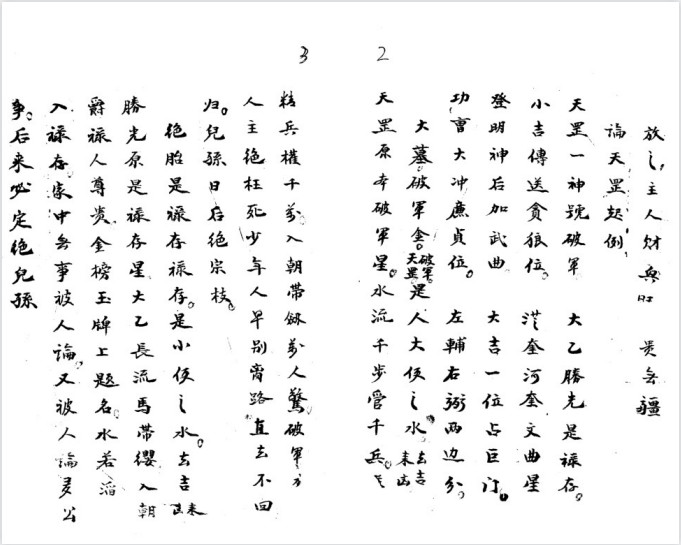 2
放之主人財興旺 貴無疆
論天罡起例
天罡一神號破軍 大乙勝光是祿存。
小吉傳送貪狼位。 奎河奎文曲星
登明神后加武曲 大吉一位占巨门。
功曹大冲廉貞位。 左輔右弼两边分。
大墓破軍金。破軍。天罡是人大便之水。去吉来凶
天罡原本破軍星。水流千步管千兵。
3
精兵權千萬入朝帶劔萬人驚破軍
人主绝枉死少年人早别膏路。直去不回
归。兒孫日后绝宗枝。
绝胎是祿存祿存。是小便之水。去吉来凶
勝光原是祿存星大乙長流馬帶纓入朝
爵祿人尊贵金榜玉牌上题名。水若
入祿存家中無事被人論。又被人論多公
事。后来必定绝兒孫